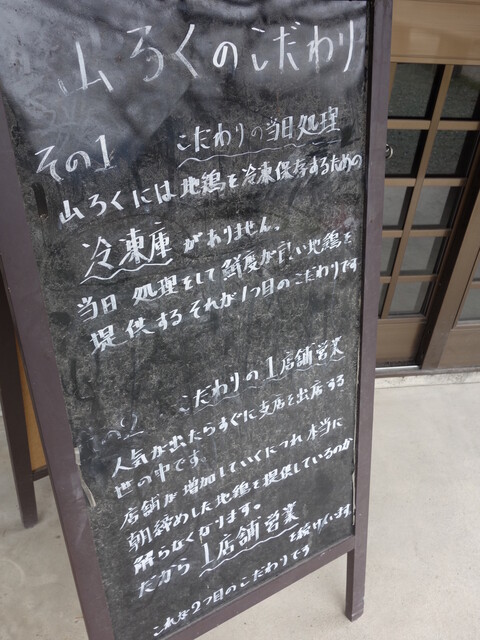 山ろくのこだわり
その1 こだわりの当日処理
山ろくには地鶏を冷凍保存するための
冷凍庫がありません。
当日処理をして鮮度が良い地鶏を
提供するそれが1つ目のこだわりです
その2 こだわりの1店舗営業
人気が出たらすぐに支店を出店する
世の中です。
店舗が増加していくにつれ本当に
朝締めした地鶏を提供しているのか
解らなくなります。
だから1店舗営業を続けています
これが2つ目のこだわりです